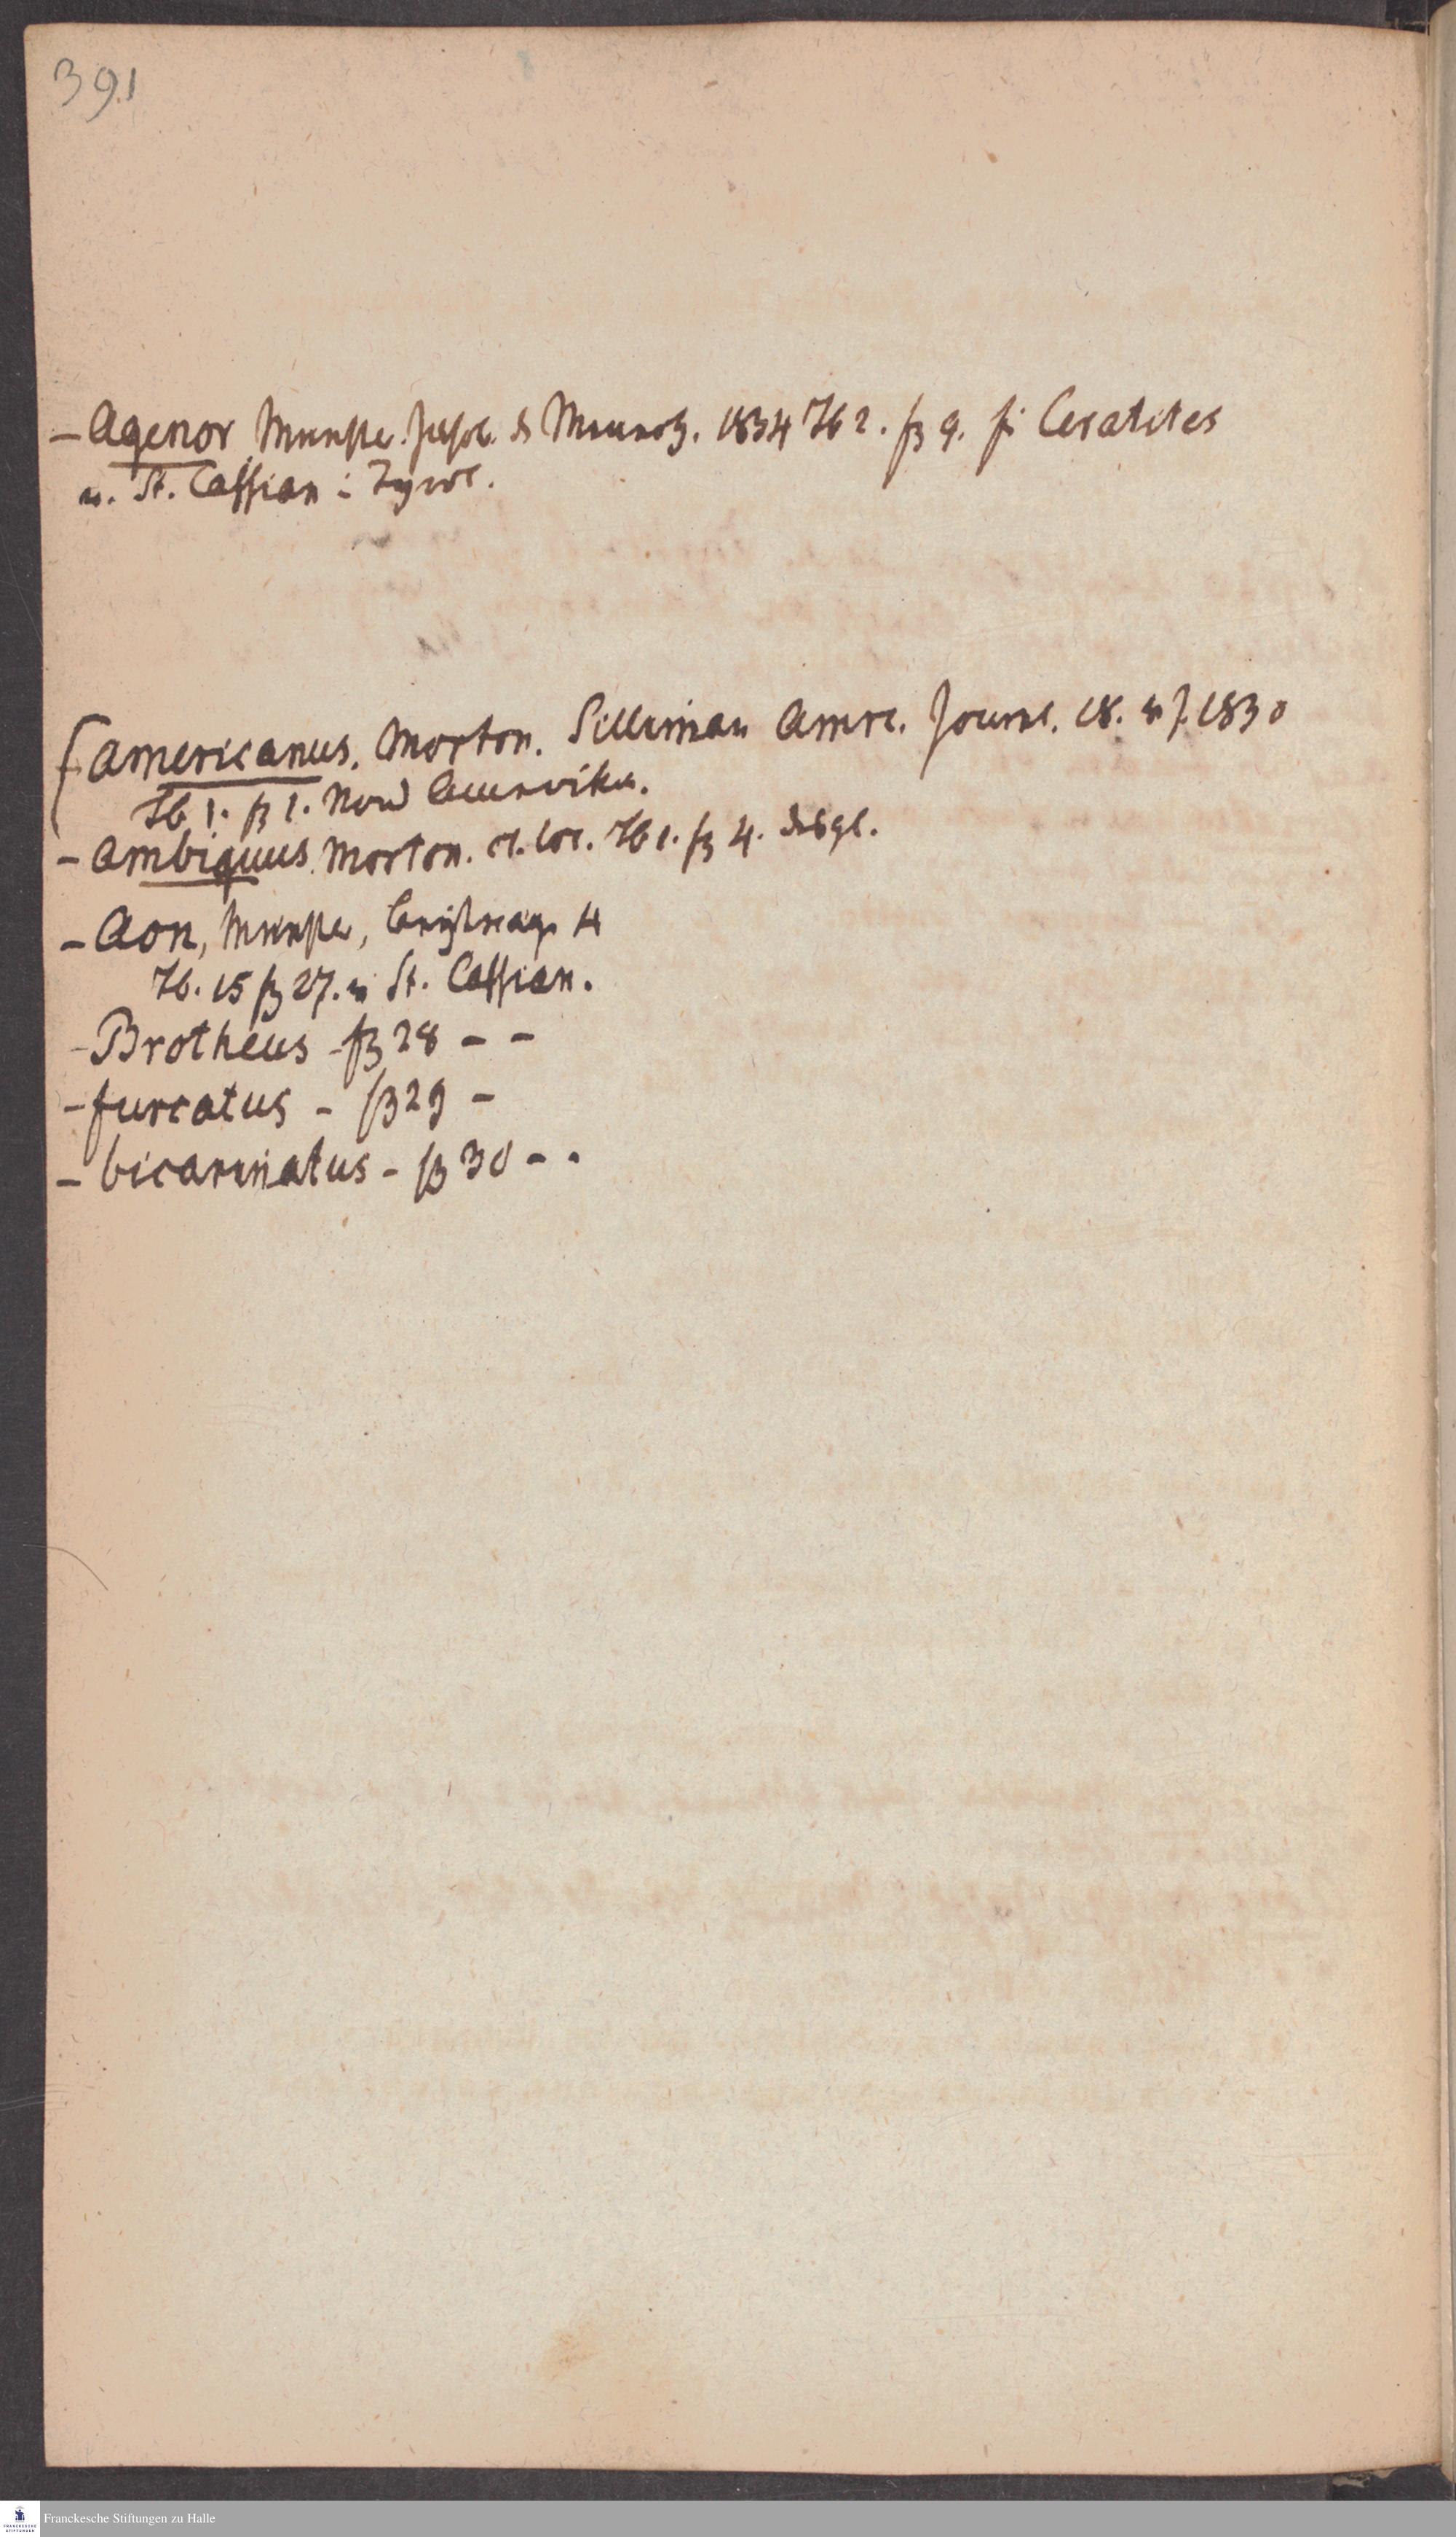 391
– Agenor Münster. Jahrb. d Mineral. 1834 Tb 2. fg 9. f: Ceratites
v. St. Cassian i Tyrol.
– americanus. Morton. Silliman Amrc. Journl. 18. v J. 1830
Tb 1. fg 1. Nord Amerika.
– ambiguus. Morton. c. loc. Tb 1. fg 4. desgl.
– Aon, Münster, Beiträge 4
Tb. 15 fg 27. v St. Cassian.
– Brotheus – fg 28 – –
– furcatus – fg 29 –
– bicarinatus – fg 30 – –
Franckesche Stiftungen zu Halle
FRANCKESCHE
STIFTUNGEN